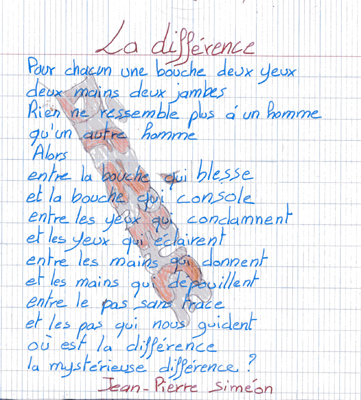 La différence
Pour chacun une bouche deux yeux
deux mains deux jambes
Rien ne ressemble plus à un homme
qu'un autre homme
Alors
entre la bouche qui blesse
et la bouche qui console
entre les yeux qui condamnent
et les yeux qui éclairent
entre les mains qui donnent
et les mains qui dépouillent
entre le pas sans trace
et les pas qui nous guident
où est la différence
la mystérieuse différence ?
Jean-Pierre Siméon